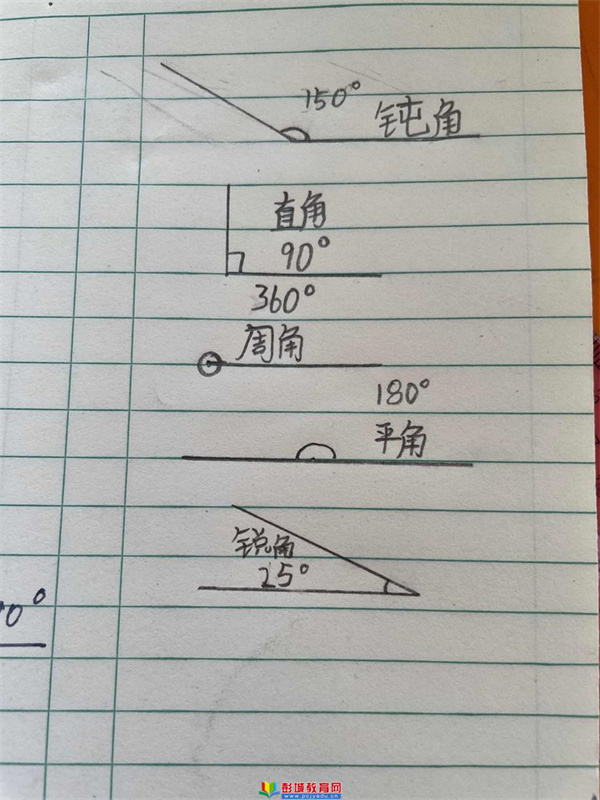 150°
钝角
直角
90°
360°
周角
180°
平角
锐角
25°
0°
彭城教育网
www.pcjyedu.cn